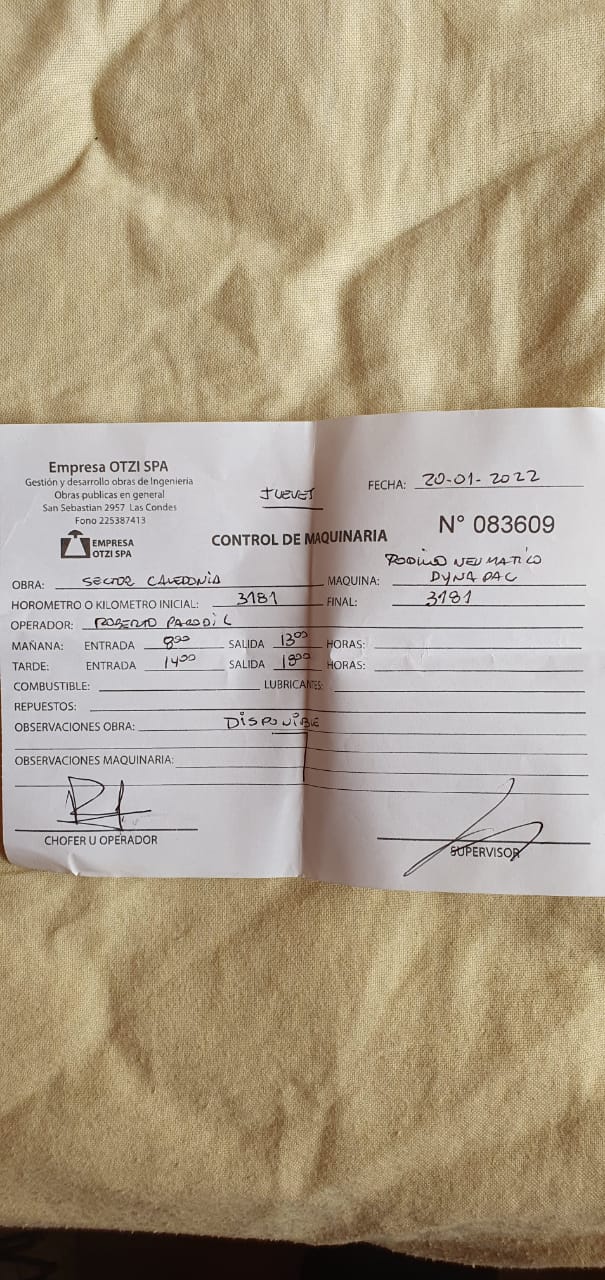 Empresa OTZI SPA
Gestión y desarrollo obras de Ingenieria
Obras publicas en general
San Sebastian 2957 Las Condes
Fono 225387413
EMPRESA
OTZI SPA
JUEVES
FECHA: 20-01-2022
CONTROL DE MAQUINARIA
N° 083609
OBRA: SECTOR CALEDONIA
MAQUINA: RODILLO NEUMATICO
DYNAPAC
HOROMETRO O KILOMETRO INICIAL: 3181 FINAL: 3181
OPERADOR: ROBERTO PARODI C
MAÑANA: ENTRADA 8:00 SALIDA 13:00 HORAS:
TARDE: ENTRADA 14:00 SALIDA 18:00 HORAS:
COMBUSTIBLE: LUBRICANTES:
REPUESTOS:
OBSERVACIONES OBRA: DISPONIBLE
OBSERVACIONES MAQUINARIA:
CHOFER U OPERADOR
SUPERVISOR